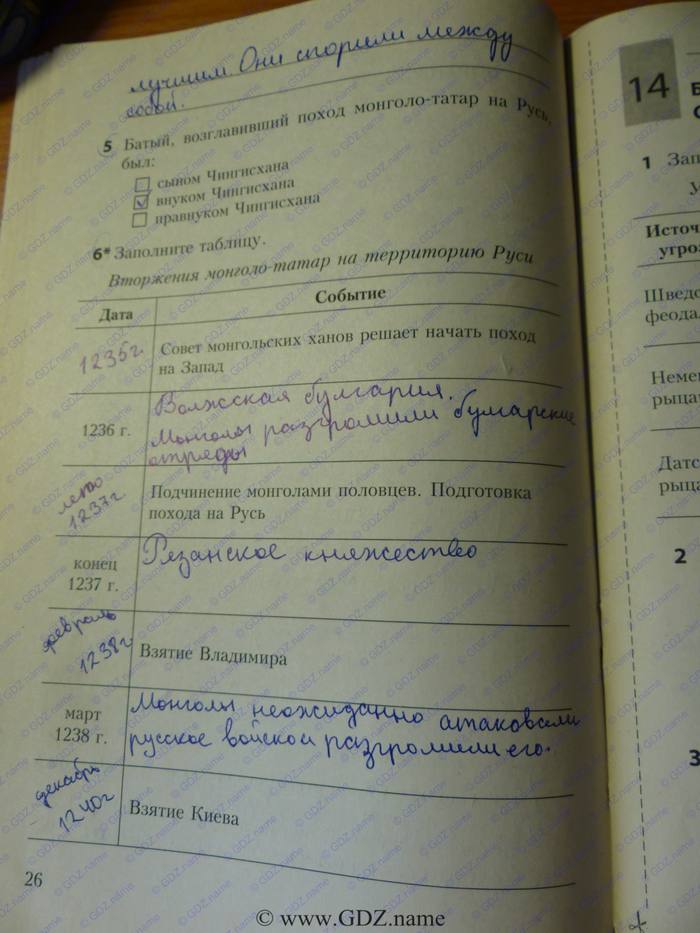 лучшим. Они спорили между
собой.
5 Батый, возглавивший поход монголо-татар на Русь,
был:
сыном Чингисхана
внуком Чингисхана
правнуком Чингисхана
6* Заполните таблицу.
Вторжения монголо-татар на территорию Руси
Дата
Событие
1235г.
Совет монгольских ханов решает начать поход
на Запад
1236 г.
Волжская булгария.
Монголы разгромили булгарские
отряды
лето
1237г
Подчинение монголами половцев. Подготовка
похода на Русь
конец
1237 г.
Рязанское княжество
февраль
1238г
Взятие Владимира
март
1238 г.
Монголы неожиданно атаковали
русское войско и разгромили его.
декабрь
1240г
Взятие Киева
26
14
1
2
3
Источ
угро
Шведс
феода
Неме
рыца
Датс
рыца
© www.GDZ.name